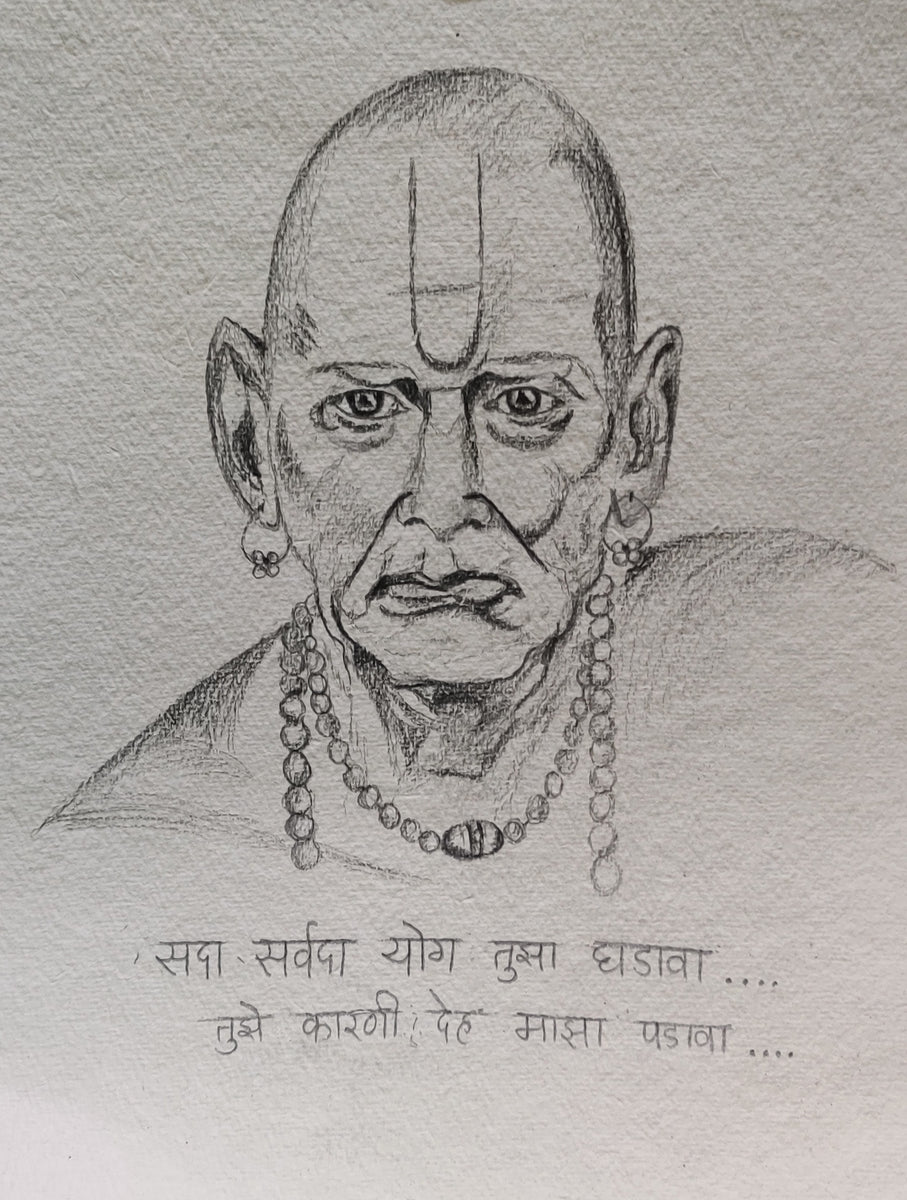 सदा सर्वदा योग तुझा घडावा ....
तुझे कारणी देह माझा पडावा ....